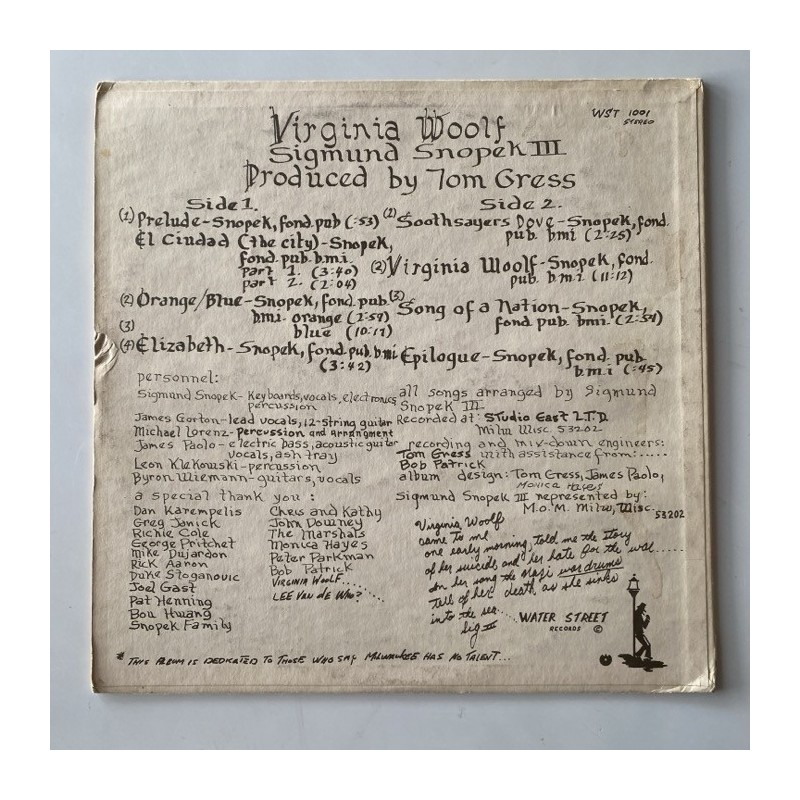 Virginia Woolf
WST 1001
STEREO
Sigmund Snopek III
Produced by Tom Gress
Side 1.
(1) Prelude-Snopek, fond. pub (:53)
El Ciudad (the city)-Snopek,
fond. pub. b.m.i.
part 1. (3:40)
part 2. (2:04)
(2) Orange/Blue-Snopek, fond. pub.
bmi. orange (2:59)
(3) blue (10:17)
(4) Elizabeth-Snopek, fond. pub. bmi
(3:42)
Side 2.
(1) Soothsayers Dove-Snopek, fond.
pub. bmi (2:25)
(2) Virginia Woolf-Snopek, fond.
pub. b.m.i (11:12)
(3) Song of a Nation-Snopek,
fond. pub. bmi. (2:54)
Epilogue-Snopek, fond. pub.
b.m.i (:45)
personnel:
Sigmund Snopek- Keyboards, vocals, electronics
percussion
James Gorton-lead vocals, 12-string guitar
Michael Lorenz-percussion and arrangement
James Paolo-electric bass, acoustic guitar
vocals, ash tray
Leon Klekowski-percussion
Byron Wiemann-guitars, vocals
all songs arranged by Sigmund
Snopek III
Recorded at: Studio East L.T.D.
Milw Wisc. 53202
recording and mix-down engineers:
Tom Gress with assistance from:.....
Bob Patrick
album design: Tom Gress, James Paolo,
Monica Hayes
Sigmund Snopek III represented by:
M.o.M. Milw, Wisc.
53202
a special thank you:
Dan Karempelis
Greg Janick
Richie Cole
George Pritchet
Mike Dujardon
Rick Aaron
Duke Stoganovic
Joel Gast
Pat Henning
Bou Hwang
Snopek Family
Chris and Kathy
John Downey
The Marshals
Monica Hayes
Peter Parkman
Bob Patrick
Virginia Woolf....
Lee Van de Who?.....
Virginia Woolf
came to me
one early morning, told me the story
of her suicide, and her hate for the war.....
In her song the Nazi war drums
tell of her death as she sinks
into the sea...
Sig III
WATER STREET
RECORDS ©
* THIS ALBUM IS DEDICATED TO THOSE WHO SAY MILWAUKEE HAS NO TALENT...